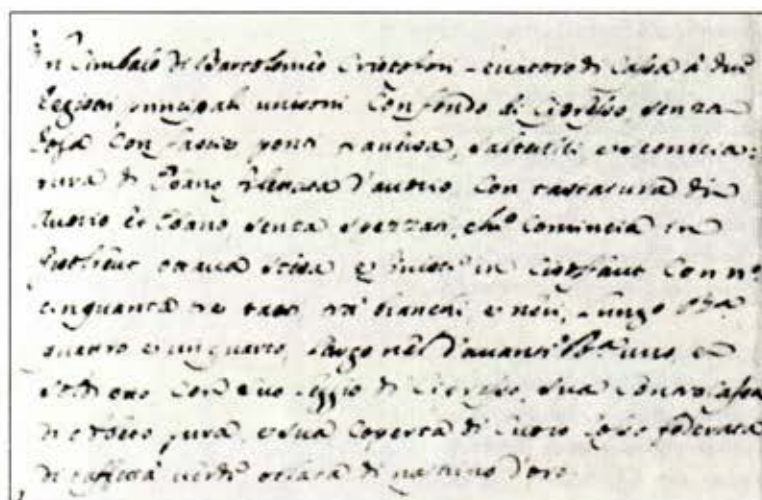 Un Cimbalo di Bartolomeo Cristofori levatore di Cassa à due
Registri principali unisoni con fondo di Cipresso senza
Rosa con fascie ponti
tura di Ebano d'avorio con tastatura di
Avorio et Ebano senza spezzati, che comincia in
ottava stesa e finisce in Cisolfaut con n.º
cinquanta tre tasti trà bianchi, e neri, Lungo
quattro e un quarto, Largo nel d'avanti uno, e
soldi otto con suo Leggio di Cipresso, sua Controcassa
di pura, e sua coperta di Cuoio rosso foderata
di taffettà verde orlata di nastrino d'oro